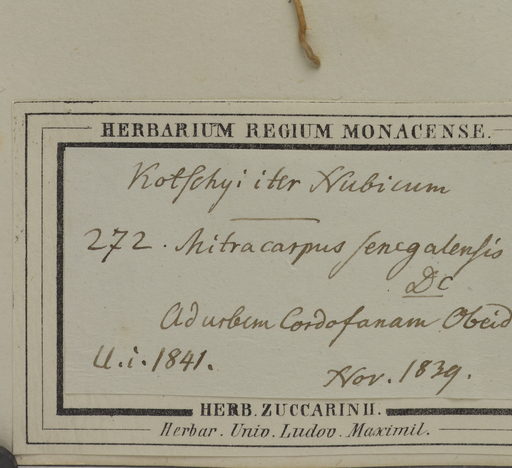 HERBARIUM REGIUM MONACENSE.
Kotschyi iter Nubicum
272. Mitracarpus senegalensis
DC
Ad urbem Cordofanam Obeid
U.i. 1841.
Nov. 1839.
HERB. ZUCCARINII.
Herbar. Univ. Ludov. Maximil.